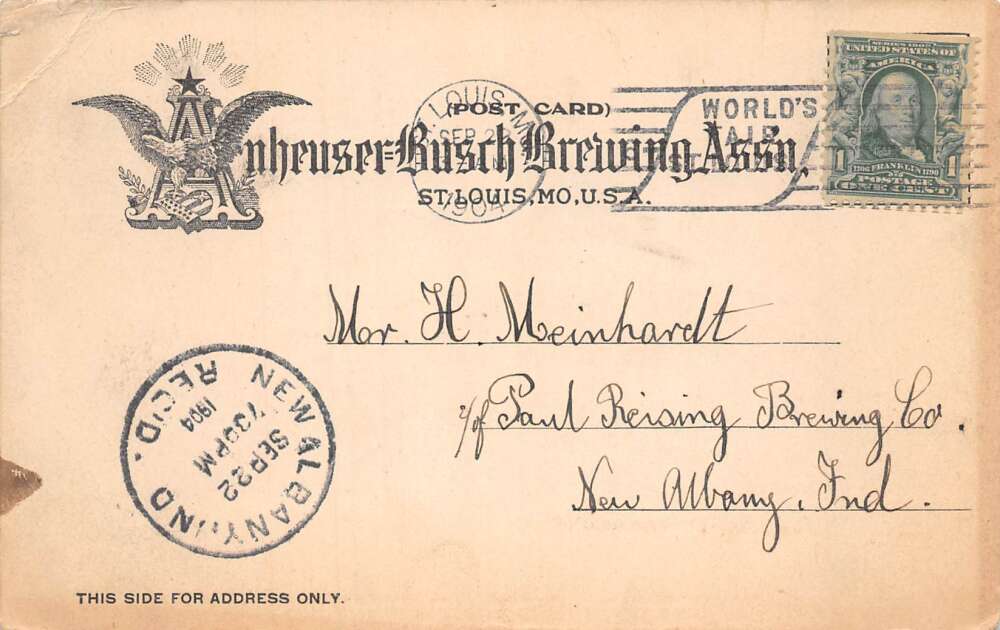 (POST CARD)
Anheuser-Busch Brewing Ass'n.
ST. LOUIS, MO, U.S.A.
ST. LOUIS, MO.
SEP
1904
WORLD'S
FAIR
SERIES 1902
UNITED STATES OF
AMERICA
1706 FRANKLIN 1790
1 POSTAGE 1
ONE CENT
Mr. H. Meinhardt
c/of Paul Reising Brewing Co.
New Albany, Ind.
NEW ALBANY, IND.
SEP 22
730PM
1904
REC'D.
THIS SIDE FOR ADDRESS ONLY.